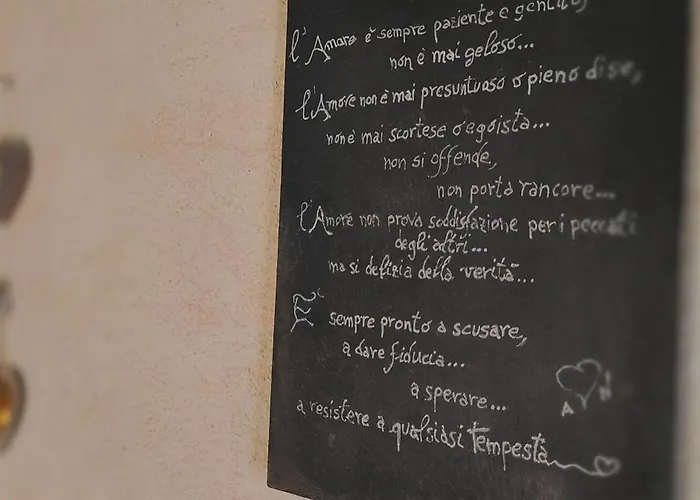 l'Amore è sempre paziente e gentile,
non è mai geloso...
l'Amore non è mai presuntuoso o pieno di se,
non è mai scortese o egoista...
non si offende,
non porta rancore...
l'Amore non prova soddisfazione per i peccati
degli altri...
ma si delizia della verità...
E' sempre pronto a scusare,
a dare fiducia...
a sperare...
a resistere a qualsiasi tempesta
A
N